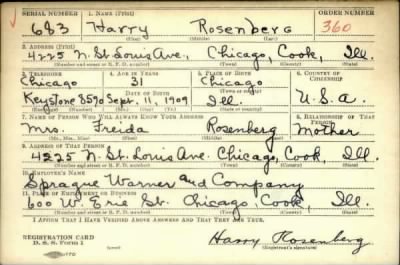 SERIAL NUMBER 1. NAME (Print) ORDER NUMBER
683 Harry Rosenberg 360
(First) (Middle) (Last)
2. ADDRESS (Print)
4225 N. St. Louis Ave., Chicago, Cook, Ill.
(Number and street or R. F. D. number) (Town) (County) (State)
3. TELEPHONE 4. AGE IN YEARS 5. PLACE OF BIRTH 6. COUNTRY OF CITIZENSHIP
Chicago 31 Chicago
DATE OF BIRTH
Keystone 8590 Sept. 11, 1909 Ill. U.S.A.
7. NAME OF PERSON WHO WILL ALWAYS KNOW YOUR ADDRESS 8. RELATIONSHIP OF THAT PERSON
Mrs. Freida Rosenberg Mother
(Mr., Mrs., Miss) (First) (Middle) (Last)
9. ADDRESS OF THAT PERSON
4225 N. St. Louis Ave. Chicago, Cook Ill.
(Number and street or R. F. D. number) (Town) (County) (State)
10. EMPLOYER'S NAME
Sprague Warner and Company
11. PLACE OF EMPLOYMENT OR BUSINESS
600 W. Erie St. Chicago, Cook, Ill.
(Number and street or R. F. D. number) (Town) (County) (State)
I AFFIRM THAT I HAVE VERIFIED ABOVE ANSWERS AND THAT THEY ARE TRUE.
REGISTRATION CARD
D. S. S. Form 1 Harry Rosenberg
(Registrant's signature)